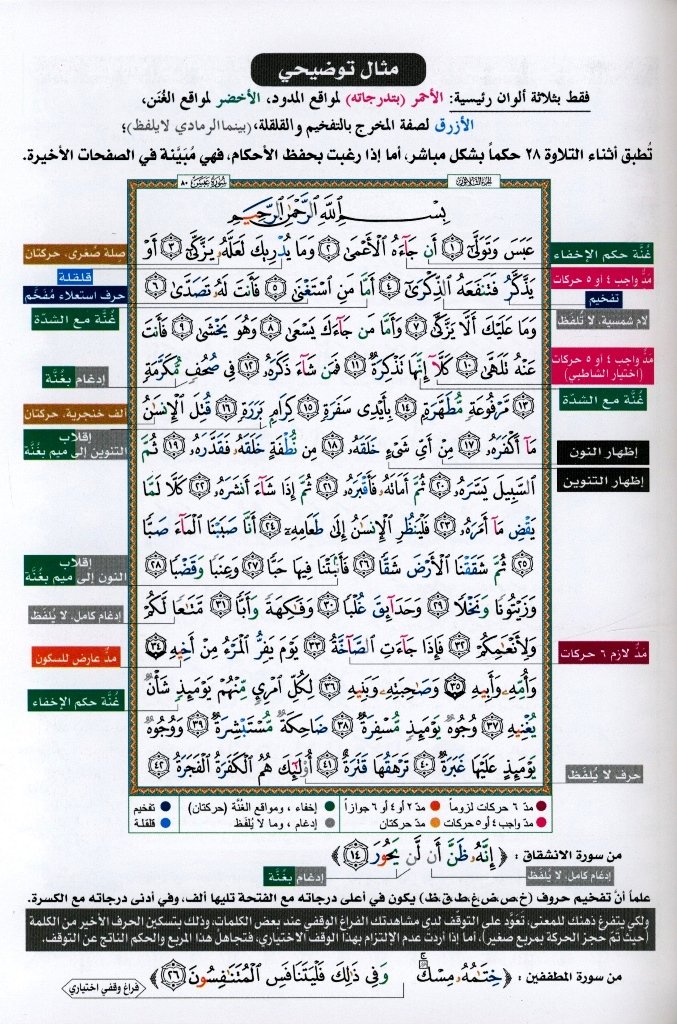 مثال توضيحي
فقط بثلاثة ألوان رئيسية: الأحمر (بتدرجاته) لمواقع المدود، الأخضر لمواقع الغُنَن،
الأزرق لصفة المخرج بالتفخيم والقلقلة، (بينما الرمادي لا يلفظ)؛
تُطبق أثناء التلاوة ٢٨ حكماً بشكل مباشر، أما إذا رغبت بحفظ الأحكام، فهي مُبَيَّنة في الصفحات الأخيرة.
الجزء الثلاثون
سُورَة عَبَسَ ٨٠
بِسْمِ اللَّهِ الرَّحْمَٰنِ الرَّحِيمِ
عَبَسَ وَتَوَلَّىٰٓ ١ أَن جَآءَهُ الْأَعْمَىٰ ٢ وَمَا يُدْرِيكَ لَعَلَّهُۥ يَزَّكَّىٰٓ ٣ أَوْ
يَذَّكَّرُ فَتَنفَعَهُ الذِّكْرَىٰٓ ٤ أَمَّا مَنِ اسْتَغْنَىٰ ٥ فَأَنتَ لَهُۥ تَصَدَّىٰ ٦
وَمَا عَلَيْكَ أَلَّا يَزَّكَّىٰ ٧ وَأَمَّا مَن جَآءَكَ يَسْعَىٰ ٨ وَهُوَ يَخْشَىٰ ٩ فَأَنتَ
عَنْهُ تَلَهَّىٰ ١٠ كَلَّآ إِنَّهَا تَذْكِرَةٌ ١١ فَمَن شَآءَ ذَكَرَهُۥ ١٢ فِي صُحُفٍ مُّكَرَّمَةٍ
١٣ مَّرْفُوعَةٍ مُّطَهَّرَةٍۭ ١٤ بِأَيْدِي سَفَرَةٍ ١٥ كِرَامٍۭ بَرَرَةٍ ١٦ قُتِلَ الْإِنسَٰنُ
مَآ أَكْفَرَهُۥ ١٧ مِنْ أَيِّ شَيْءٍ خَلَقَهُۥ ١٨ مِن نُّطْفَةٍ خَلَقَهُۥ فَقَدَّرَهُۥ ١٩ ثُمَّ
السَّبِيلَ يَسَّرَهُۥ ٢٠ ثُمَّ أَمَاتَهُۥ فَأَقْبَرَهُۥ ٢١ ثُمَّ إِذَا شَآءَ أَنشَرَهُۥ ٢٢ كَلَّا لَمَّا
يَقْضِ مَآ أَمَرَهُۥ ٢٣ فَلْيَنظُرِ الْإِنسَٰنُ إِلَىٰ طَعَامِهِۦٓ ٢٤ أَنَّا صَبَبْنَا الْمَآءَ صَبًّا
٢٥ ثُمَّ شَقَقْنَا الْأَرْضَ شَقًّا ٢٦ فَأَنۢبَتْنَا فِيهَا حَبًّا ٢٧ وَعِنَبًا وَقَضْبًا ٢٨
وَزَيْتُونًا وَنَخْلًا ٢٩ وَحَدَآئِقَ غُلْبًا ٣٠ وَفَٰكِهَةً وَأَبًّا ٣١ مَّتَٰعًا لَّكُمْ
وَلِأَنْعَٰمِكُمْ ٣٢ فَإِذَا جَآءَتِ الصَّآخَّةُ ٣٣ يَوْمَ يَفِرُّ الْمَرْءُ مِنْ أَخِيهِ ٣٤
وَأُمِّهِۦ وَأَبِيهِ ٣٥ وَصَٰحِبَتِهِۦ وَبَنِيهِ ٣٦ لِكُلِّ امْرِئٍ مِّنْهُمْ يَوْمَئِذٍ شَأْنٌ
يُغْنِيهِ ٣٧ وُجُوهٌ يَوْمَئِذٍ مُّسْفِرَةٌ ٣٨ ضَاحِكَةٌ مُّسْتَبْشِرَةٌ ٣٩ وَوُجُوهٌ
يَوْمَئِذٍ عَلَيْهَا غَبَرَةٌ ٤٠ تَرْهَقُهَا قَتَرَةٌ ٤١ أُو۟لَٰٓئِكَ هُمُ الْكَفَرَةُ الْفَجَرَةُ ٤٢
غُنَّة حكم الإخفاء
مدّ واجب ٤ أو ٥ حركات
تفخيم
لام شمسية، لا تُلفَظ
مدّ واجب ٤ أو ٥ حركات
(اختيار الشاطبي)
غُنَّة مع الشدّة
إظهار النون
إظهار التنوين
مدّ لازم ٦ حركات
حرف لا يُلفَظ
صلة صُغرى، حركتان
قلقلة
حرف استعلاء مُفَخَّم
غُنَّة مع الشدّة
إدغام بغُنَّة
ألف خنجرية، حركتان
إقلاب
التنوين إلى ميم بغُنَّة
إقلاب
النون إلى ميم بغُنَّة
إدغام كامل، لا يُلفَظ
مدّ عارض للسكون
غُنَّة حكم الإخفاء
مدّ ٦ حركات لزوماً مدّ ٢ أو ٤ أو ٦ جوازاً إخفاء ، ومواقع الغُنَّة (حركتان) تفخيم
مدّ واجب ٤ أو ٥ حركات مدّ حركتان إدغام ، وما لا يُلفَظ قلقلة
من سورة الانشقاق : ﴿ إِنَّهُۥ ظَنَّ أَن لَّن يَحُورَ ١٤ ﴾
إدغام كامل، لا يُلفَظ
إدغام بغُنَّة
علماً أنّ تفخيم حروف (خ،ص،ض،غ،ط،ق،ظ) يكون في أعلى درجاته مع الفتحة تليها ألف، وفي أدنى درجاته مع الكسرة.
ولكي يتفرغ ذهنك للمعنى، تَعَوَّد على التوقف لدى مشاهدتك الفراغ الوقفي عند بعض الكلمات، وذلك بتسكين الحرف الأخير من الكلمة
(حيث تمّ حجز الحركة بمربع صغير)، أما إذا أردت عدم الالتزام بهذا الوقف الاختياري، فتجاهل هذا المربع والحكم الناتج عن التوقف.
من سورة المطففين : ﴿ خِتَٰمُهُۥ مِسْكٌ ۚ وَفِي ذَٰلِكَ فَلْيَتَنَافَسِ الْمُتَنَٰفِسُونَ ٢٦ ﴾
فراغ وقفي اختياري